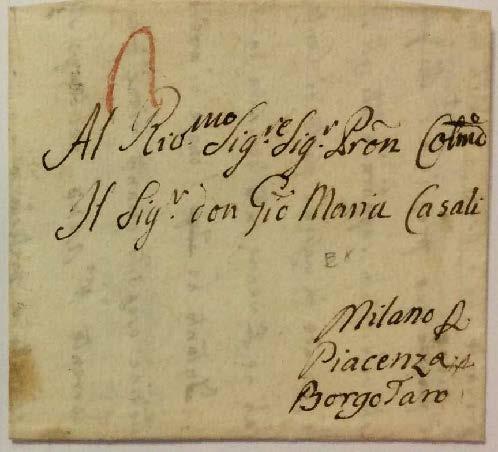 Al Rio.mo Sig.re Sig.r Prōn Colmō
Il Sig.r don Giō Maria Casali
Milano p.
Piacenza p.
BorgoTaro